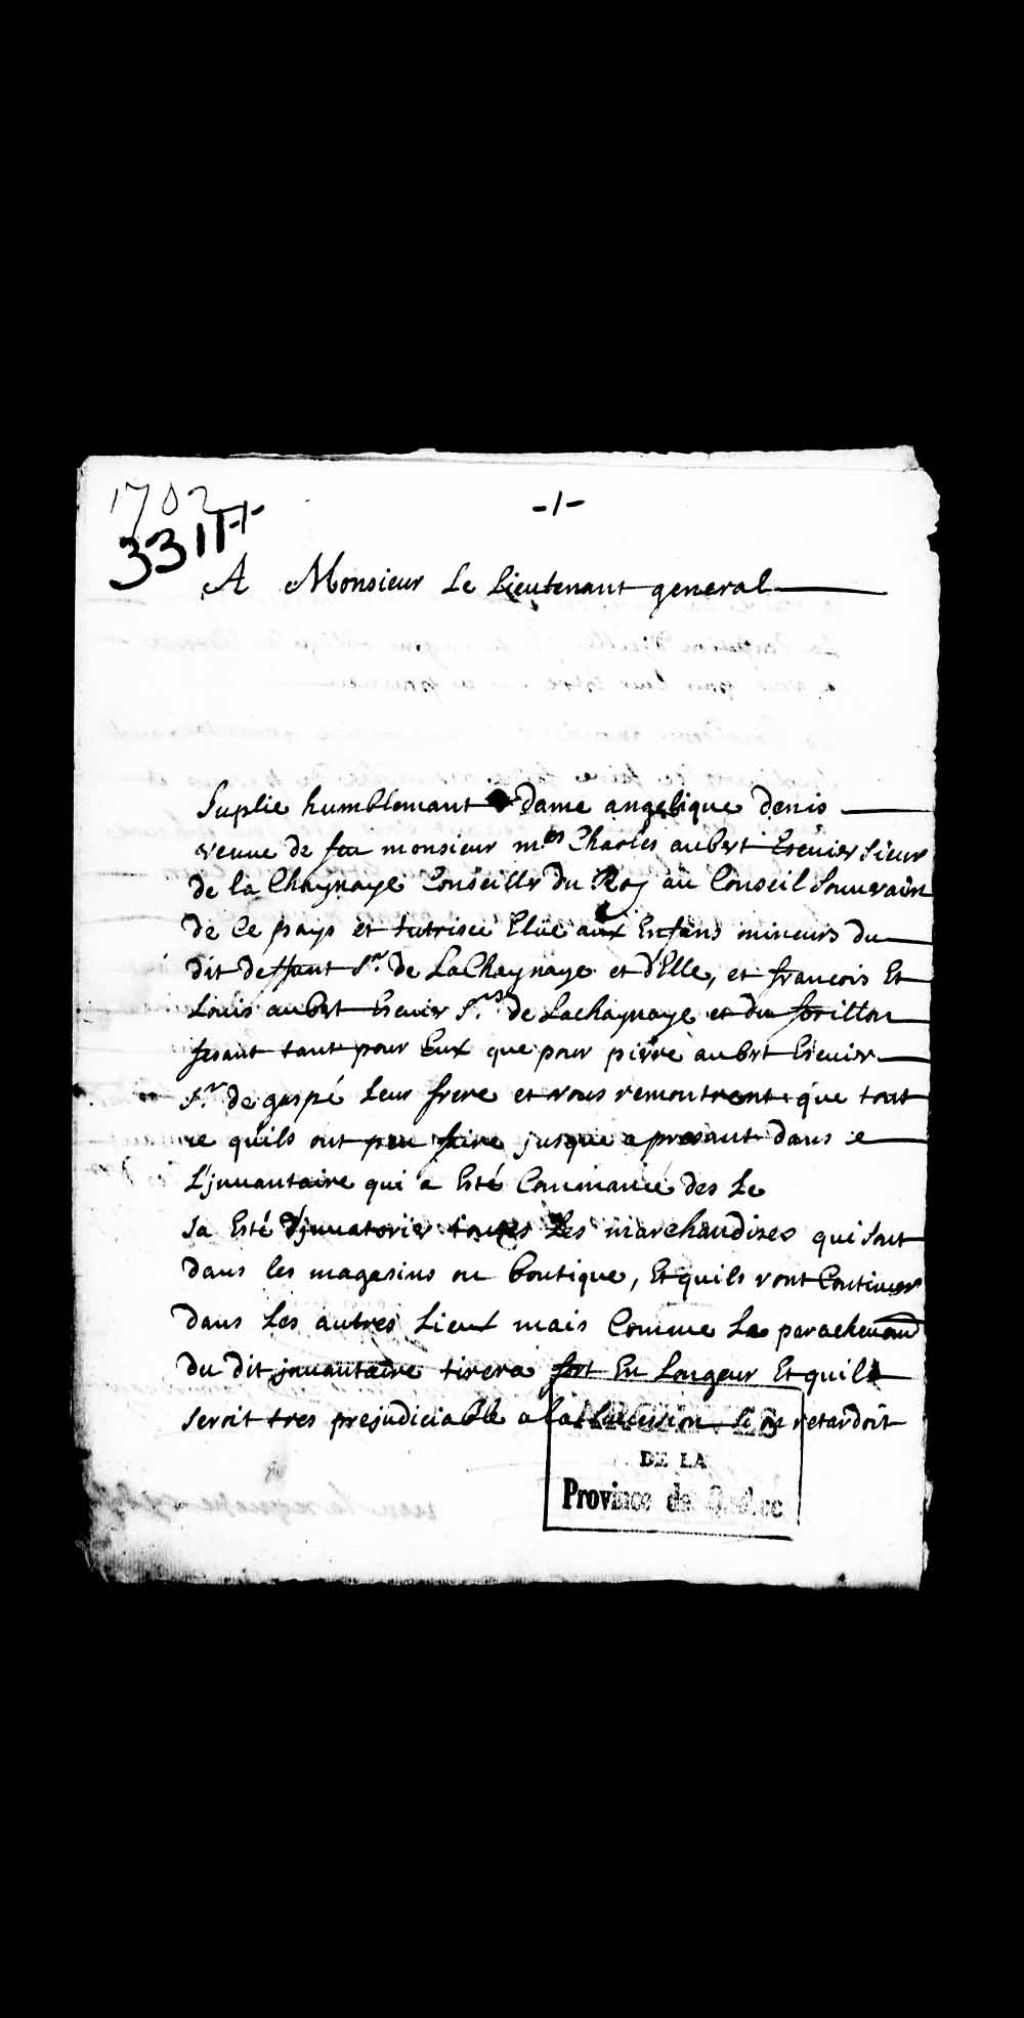 1702
331 H
-1-
A Monsieur Le Lieutenant general
Suplie humblemant dame angelique denis
veuue de feu monsieur mes Charles aubert Escuier sieur
de la Chaynaye Conseiller du Roy au Conseil Souuerain
de Ce pays et tutrisce Elüe aux Enfans mineurs du
dit deffant Sr. de LaChaynaye et d'Elle, et francois Et
Louis aubert Escuier Srs de Lachaynaye et du forillon
fesant tant pour Eux que pour pierre aubert Escuier
Sr. de gaspé Leur frere et vous remontrent que tout
ce quils ont peu faire jusque a presant dans
L'jnuantaire qui a Esté Conmancé des Le
sa Esté d'jnuatorier toutes Les marchandises qui sont
dans les magasins ou boutique, Et quils vont Continuer
dans Les autres Lieux mais Comme Le parachemant
du dit jnuantaire tirera fort En Longeur Et quil
seroit tres prejudiciable a la sucession si on retardoit
ARCHIVES
DE LA
Province de Quebec